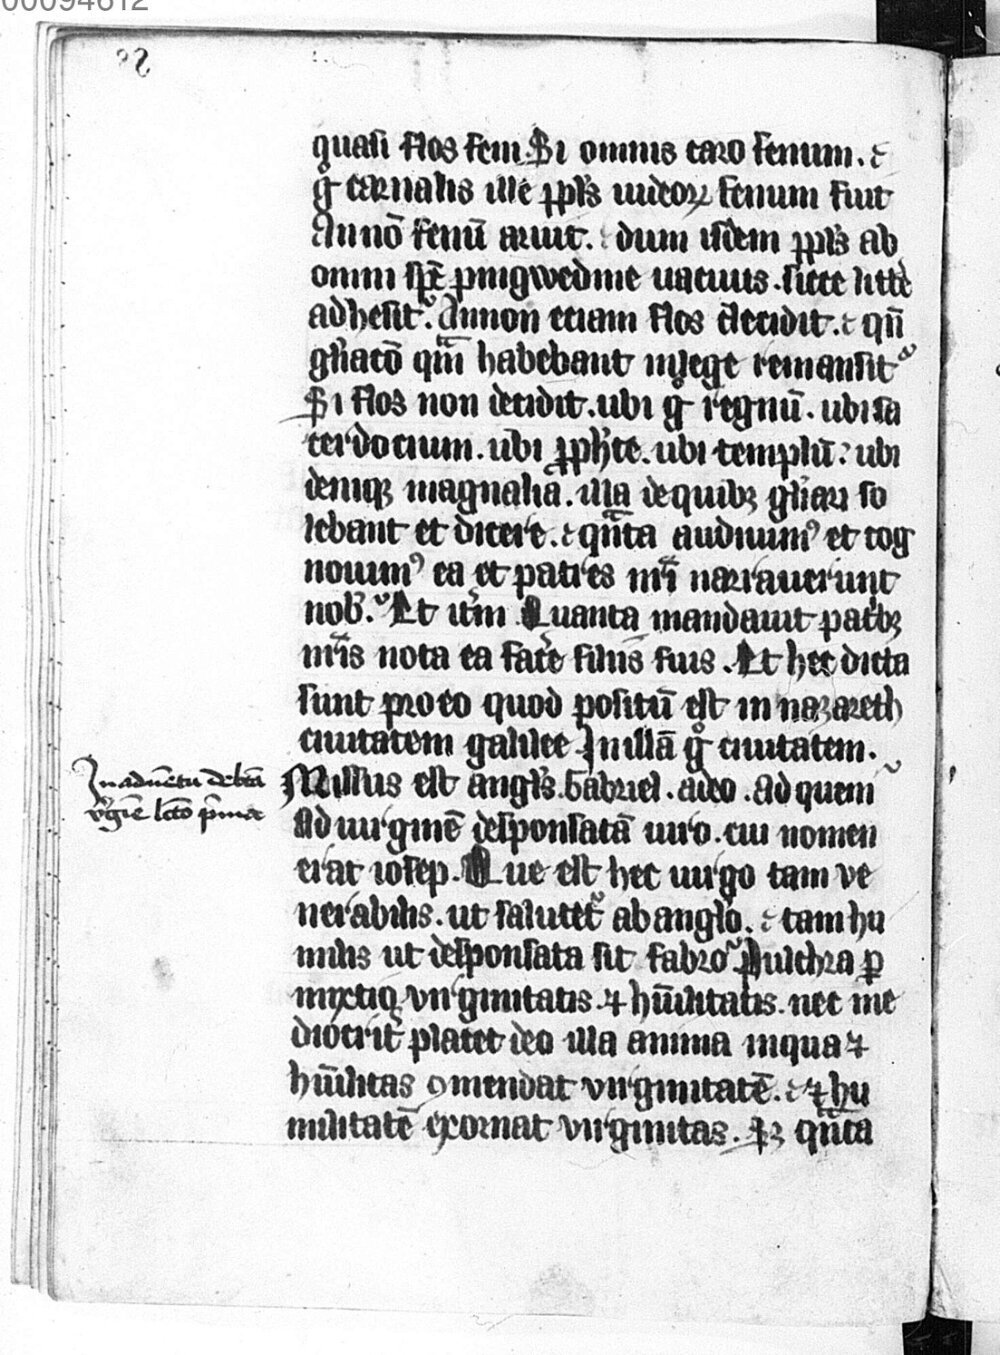 00094612
quasi flos feni. Si omnis caro fenum. ⁊
gͦ carnalis ille ppl̓s iudeoꝝ fenum fuit
Annō fenū aruit. dum isdem ppl̓s ab
omni sp̄c pingwedine uacuus . sicce litt̓e
adhesit? Annon etiam flos decidit. ⁊ qn̄
gl̓iatō qm̄ habebant in lege remansit
Si flos non decidit. ubi gͦ regnū. ubi sa
cerdocium. ubi ꝓph̓te. ubi templū? ubi
deniqꝫ magnalia. illa de quibꝫ gl̓iari so
lebant et dicere. ⁊ qn̄ta audiuimꝰ et cog
nouimꝰ ea et patres nr̄i narrauerunt
nob̓? Et it̓m Quanta mandauit patͥbꝫ
nr̄is nota ea fac̓e filiis suis . Et hec dicta
sunt pro eo quod positū est in nazareth
ciuitatem galilee In illā gͦ ciuitatem .
Missus est angl̓s. Gabriel . a deo . Ad quem
In aduētu de bt̄a
v̓gīe lc̄to p̓ma
Ad uirginē desponsatā uiro. cui nomen
erat iosep. Que est hec uirgo tam ve
nerabilis. ut salutet᷑ ab anglo. ⁊ tam hu
milis ut desponsata sit fabro? Pulchra ꝑ
mixtio virginitatis ⁊ hūilitatis. nec me
diocrit̓ placet deo illa anima in qua ⁊
hūilitas ꝯmendat virginitatē. ⁊ hu
militatē exornat virginitas. Sꝫ qn̄ta